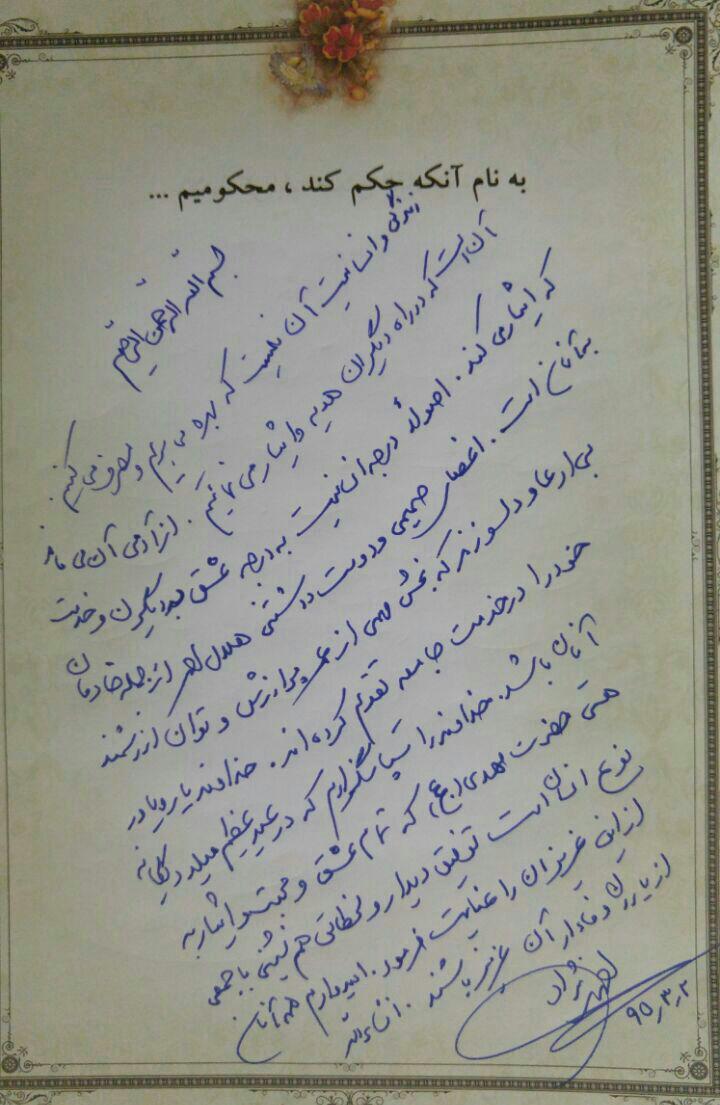 به نام آنکه حکم کند ، محکومیم ...
بسم الله الرحمن الرحیم
زندگی و انسانیت آن نیست که بهره می بریم و مصرف می کنیم.
آن است که در راه دیگران هدیه و ایثار می نمائیم. از آدمی آن می ماند
که ایثار می کند. اصولاً درجه انسانیت به درجه عشق به دیگران و خدمت
به آنان است. اعضای صمیمی و دوست داشتنی هلال احمر از جمله خادمان
بی ادعا و دلسوزند که بخش مهمی از عمر پر ارزش و توان ارزشمند
خود را در خدمت جامعه تقدیم کرده اند. خداوند یار و یاور
آنان باشد. خداوند را سپاسگزارم که در عید عظیم میلاد یگانه
منجی حضرت مهدی (عج) که تمام عشق و محبت و ایثار به
نوع انسان است توفیق دیدار و لحظاتی هم نشینی با جمعی
از این عزیزان را عنایت فرمود. امیدوارم همه آنان
از یاران وفادار آن عزیز باشند. انشاءالله
۹۵٫۳٫۲